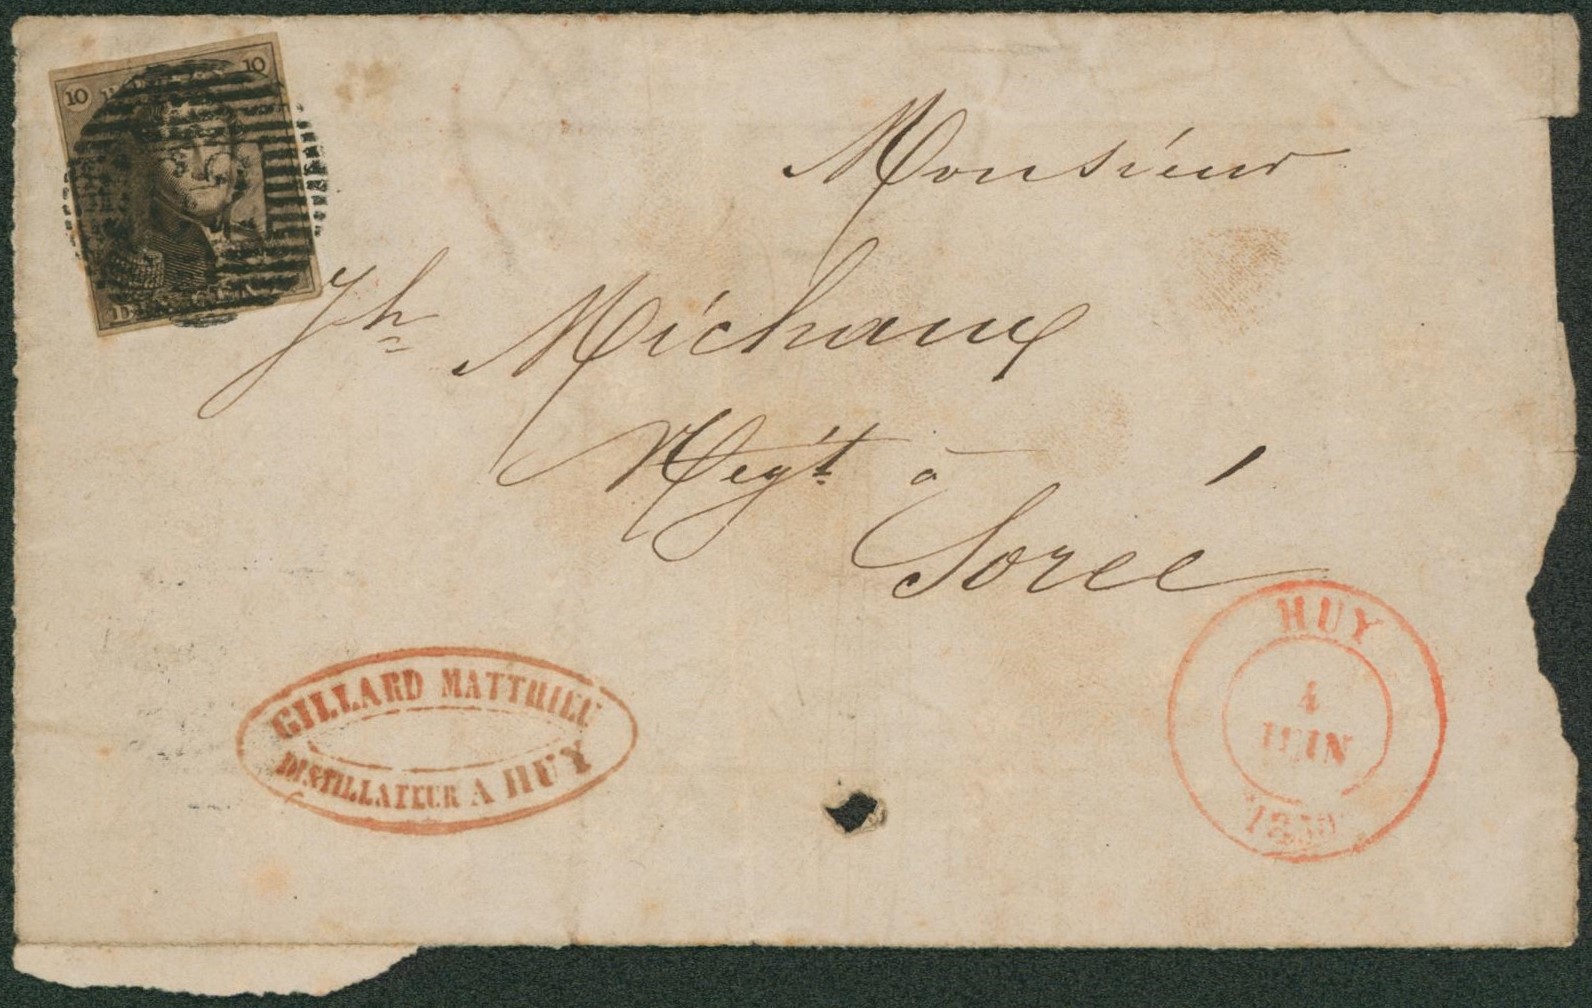 10 10
Monsieur
Jh Michaux
Negt à
Sorée
GILLARD MATTHIEU
DISTILLATEUR A HUY
HUY
4
JUIN
1850